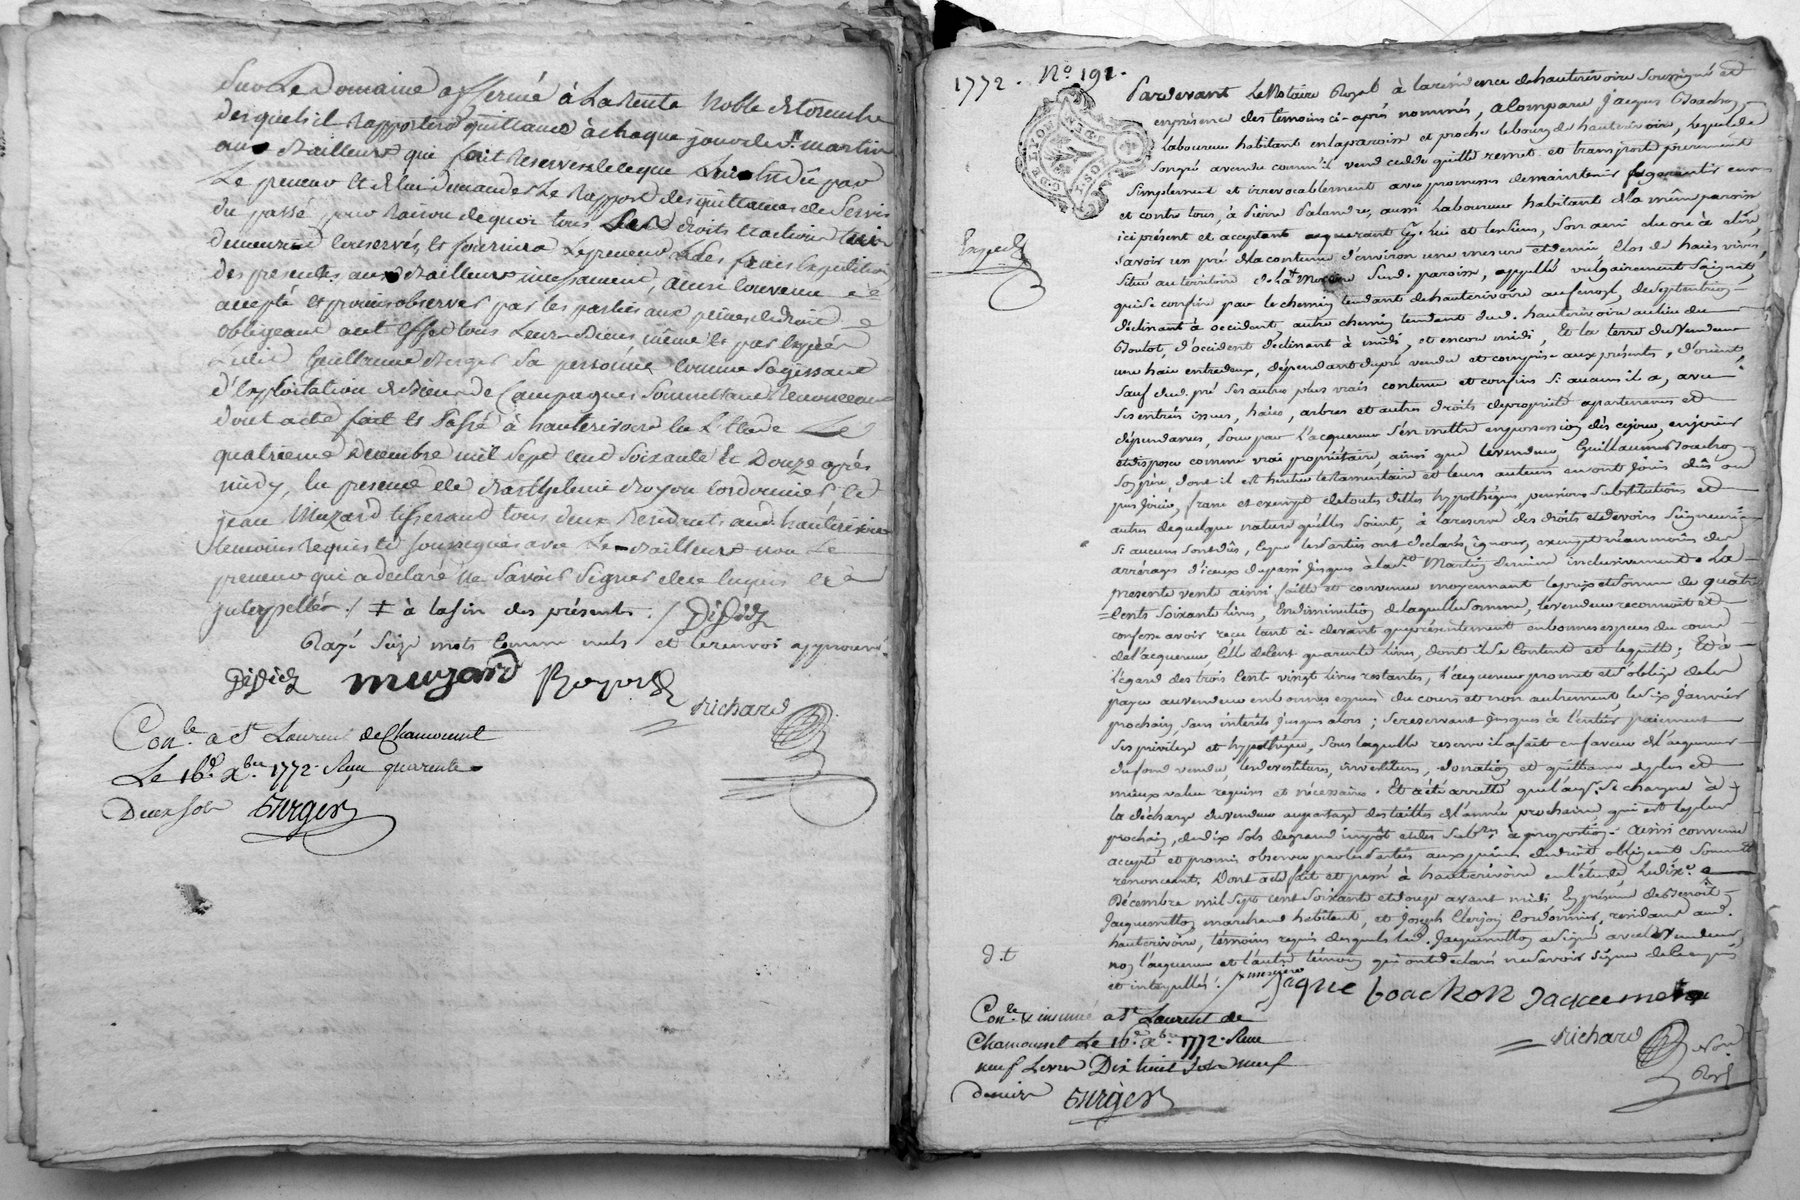 Sur Le Domaine affermé à La Rente Noble
desquels il Rapportera quittance à chaque jour de St. martin
au Bailleur qui fait Reserve de ce que Lui est dû par
Le preneur et de lui demander Le Rapport des quittances de Servis
du passé, pour Raison de quoi tous Les droits et actions lui
demeurent Conservés, et fournira Le preneur à Ses frais Expedition
des presentes au Bailleur incessament, ainsi Convenu
accepté et promis observer par les parties aux peines de droit
obligeant à cet Effet tous Leurs Biens, même et par Exprès
Ledit Guillaume Sa personne Comme S'agissant
d'Exploitation de Biens de Campagne, Soumettant Renonceant
dont acte fait et Passé à hauterivoire En L'Etude Le
quatrieme Decembre mil Sept cent Soixante et Douze après
midy, En presence de Barthelemie Royon Cordonnier et
jean Muzard tisserand tous deux Residants aud. hauterivoire
temoins Requis et soussignés avec Le Bailleur non Le
preneur qui a declaré ne Savoir Signer de ce Enquis et
interpellés ./ ‡ à la fin des présentes ./ Didier
Rayé Seize mots Comme nuls et Le renvoi approuvé
Didier muzard Royon
Richard
Con.lé a St Laurent de Chamousset
Le 16.e Xbre 1772. Reçu quarente
Deux sols Burger
1772. No. 191.
Pardevant Le Notaire Royal à la résidence de hauterivoire soussigné et
en présence des témoins ci-après nommés, a Comparu Jacques Boachon,
Laboureur habitant en la paroisse et proche le bourg de hauterivoire, Lequel de
son gré a vendu comm'il vend cède quitte remet et transporte purement
simplement et irrevocablement avec promesse de maintenir garantir envers
et contre tous, à Pierre Palandre, aussi Laboureur habitant de la même paroisse
ici présent et acceptant acquerant pr. lui et les siens, son ami élu ou à élire,
savoir un pré de la contenue d'environ une mesure et demie, clos de haies vives,
Situé au territoire de la Susd. paroisse, appellé vulgairement
qui se confine par le chemin tendant de hauterivoire au de septentrion
déclinant à occident, autre chemin tendant dud. hauterivoire au lieu du
Boulot, d'occident déclinant à midi, et encore midi, Et la terre du Vendeur
une haie entredeux, dépendante du pré vendu et comprise aux présentes, d'orient,
Sauf dud. pré ses autres plus vrais contenue et confins Si aucuns il a, avec
ses entrées issues, haies, arbres et autres droits de propriété apartenances et
dépendances, pour par L'acquereur s'en mettre en possession dès ce jour, en jouir
et disposer comme vrai propriétaire, ainsi que Le vendeur, Guillaume Boachon
son père, dont il est heritier testamentaire et leurs auteurs en ont joui dûs ou
pu jouir, franc et exempt de toutes dettes hypothèques, pensions substitutions et
autres de quelque nature qu'elles soient, à la réserve des droits et devoirs Seigneuri-
Si aucuns sont dûs, ce que les Parties ont declaré ignorer, exempt néanmoins des
arrérages d'iceux du passé jusques à la St Martin derniere inclusivement. La
presente vente ainsi faite et convenue moyennant le prix et somme de quatre
Cents Soixante livres, En diminution de laquelle somme, le vendeur reconnoit et
confesse avoir reçu tant ci-devant que présentement en bonnes especes du cours
de l'acquereur, Celle de Cent quarante livres, dont il se Contente et le quitte; Et à
l'égard des trois Cent vingt livres restantes, l'acquereur promet et s'oblige de les
payer au vendeur en bonnes especes du cours et non autrement, le six Janvier
prochain, sans intérêts jusques alors; Se reservant jusques à l'entier paiement
ses privilege et hypothèque, Sous laquelle reserve il a fait en faveur de l'acquereur
du fond vendu, les devestitures, investitures, donation et quittance de plus et
mieux value requises et nécessaires. Et a été arrêté que l'acqr. Se chargera à
la décharge du vendeur au partage des tailles de l'année prochaine, qui est le plus
prochain, de dix sols de grand impôt et des Subres. à proportion. Ainsi convenu
accepté et promis observer par les Parties aux peines de droit obligeant Soumett.
renonceant. Dont acte fait et passé à hauterivoire en l'étude, Le dixe.
Décembre mil Sept cent Soixante et douze avant midi En présence de Benoît
Jacquemetton marchand habitant, et Joseph Clerjon Cordonnier, résidant aud.
hauterivoire, témoins requis desquels led. Jacquemetton a Signé avec Le Vendeur,
non l'acquereur et l'autre témoin qui ont declaré ne savoir signer de ce enquis
et interpellés ./
jaque boachon Jaquemeton
d.t
Con.lé & insinué a St Laurent de
Chamousset Le 16.e Xbre 1772. Reçu
neuf Livres Dix huit Sols neuf
deniers Burger
Richard
Not
Royl